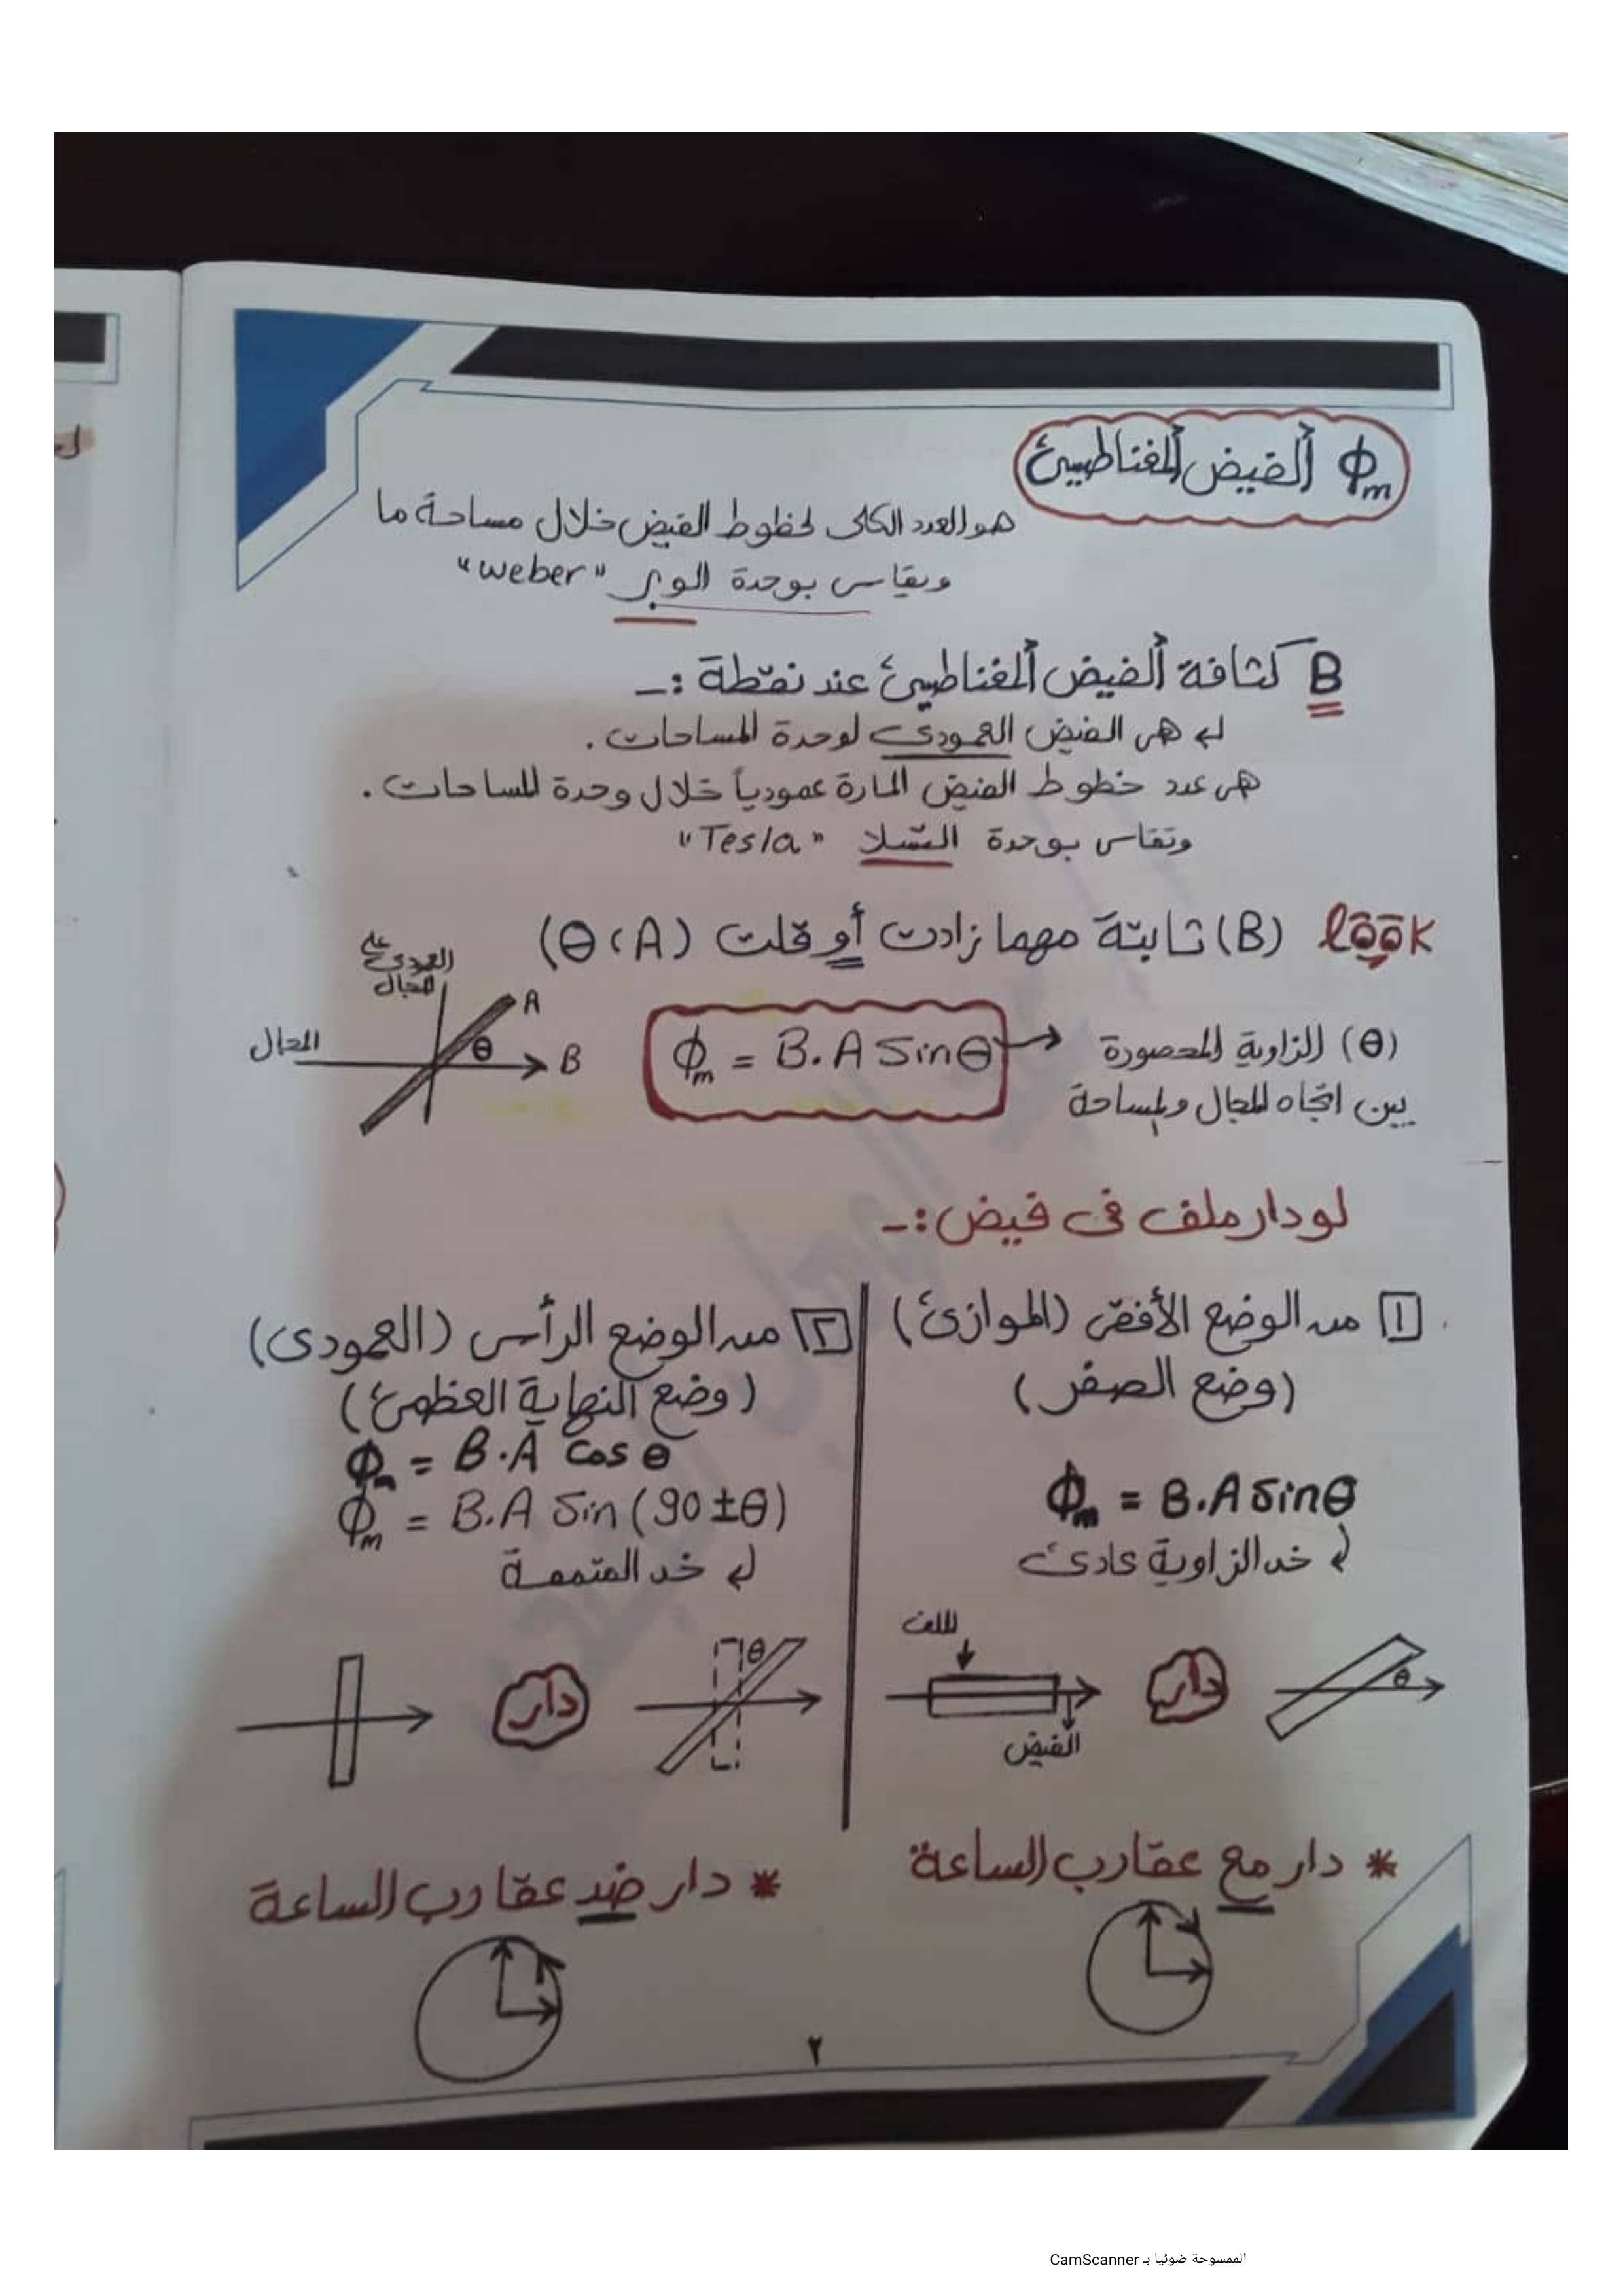 Φm الفيض المغناطيسي
هو العدد الكلي لخطوط الفيض خلال مساحة ما
ويقاس بوحدة الوبر "weber"
B كثافة الفيض المغناطيسي عند نقطة :-
هي الفيض العمودي لوحدة المساحات .
هي عدد خطوط الفيض المارة عمودياً خلال وحدة المساحات .
وتقاس بوحدة التسلا "Tesla"
look (B) ثابتة مهما زادت أو قلت (A ، θ)
العمودي على
المجال
A
المجال
θ
B
Φm = B.A Sinθ
(θ) الزاوية المحصورة
بين اتجاه المجال والمساحة
لو دار ملف في فيض :-
١ من الوضع الأفقي (الموازي)
(وضع الصفر)
Φm = B.A sinθ
خد الزاوية عادي
الملف
دار
θ
الفيض
* دار مع عقارب الساعة
٢ من الوضع الرأسي (العمودي)
(وضع النهاية العظمى)
Φm = B.A cos θ
Φm = B.A Sin (90 ± θ)
خد المتممة
دار
θ
* دار ضد عقارب الساعة
٢
الممسوحة ضوئيا بـ CamScanner